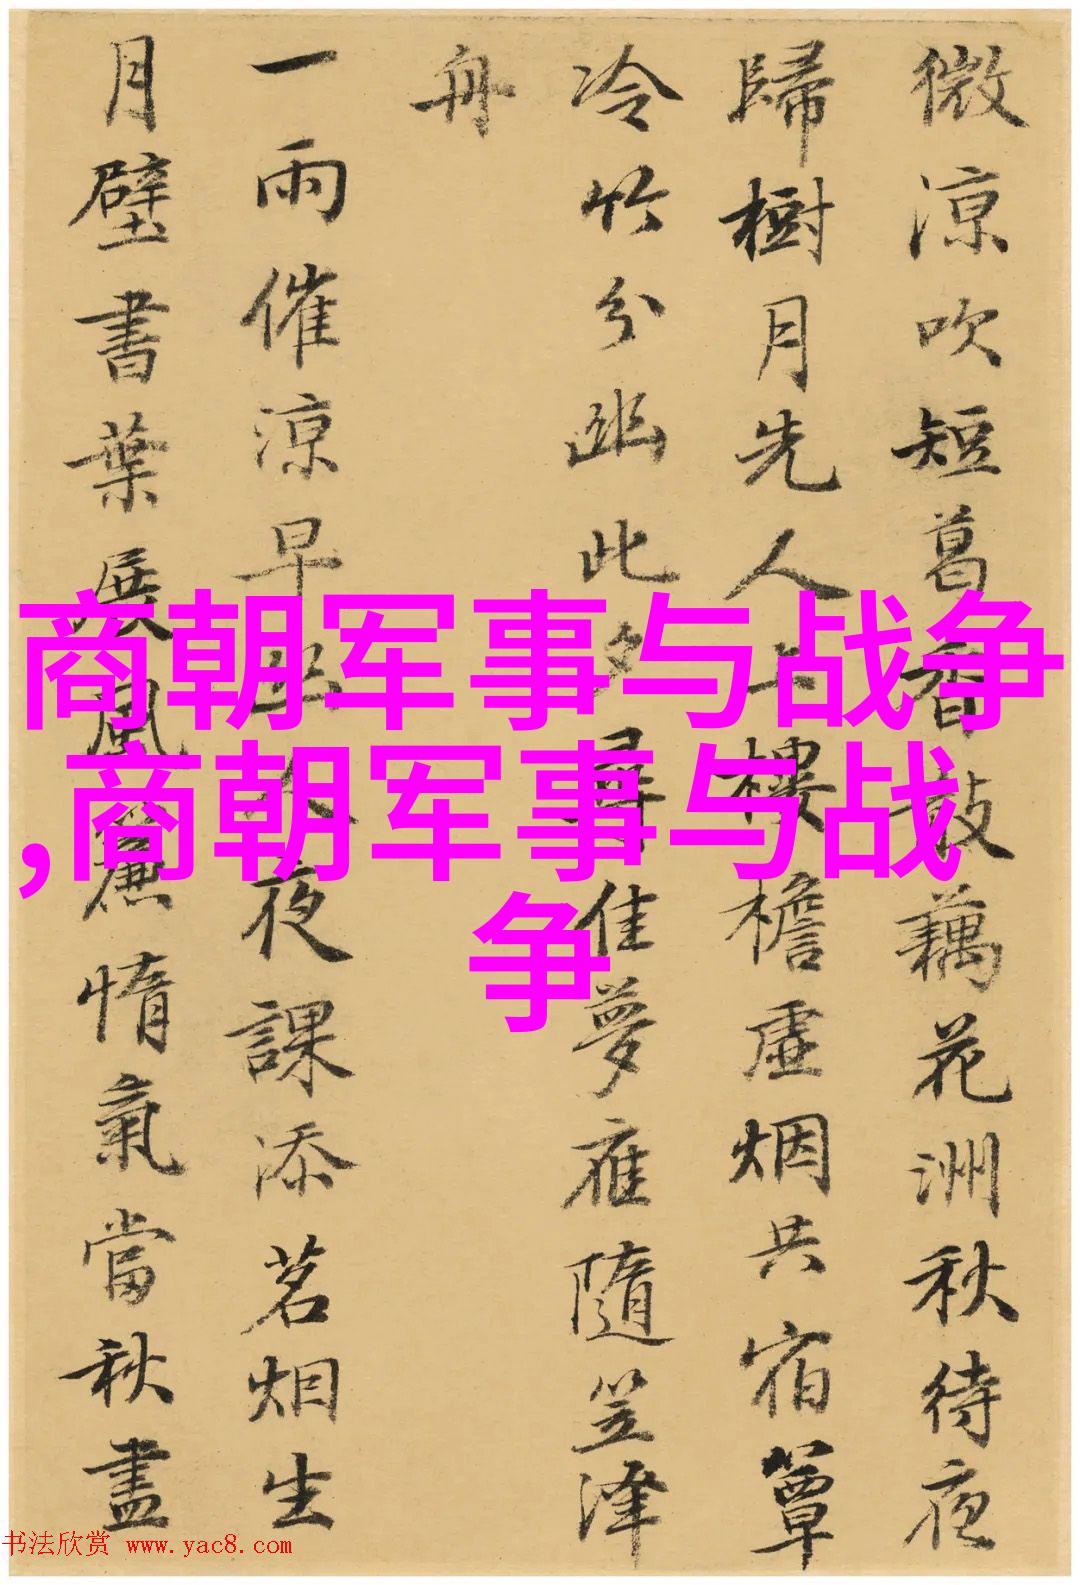 微涼吹短葛香散藕花洲秋待夜
歸樹月先人上樓檐虛烟共宿簟
冷竹分幽此夕尋佳夢雁隨笠澤
舟
一雨催涼早夜課添茗烟生
月壁書葉展風簾惰氣當秋盡
商朝军事与战争
,商朝军事与战
争
书法欣赏 www.yac8.com